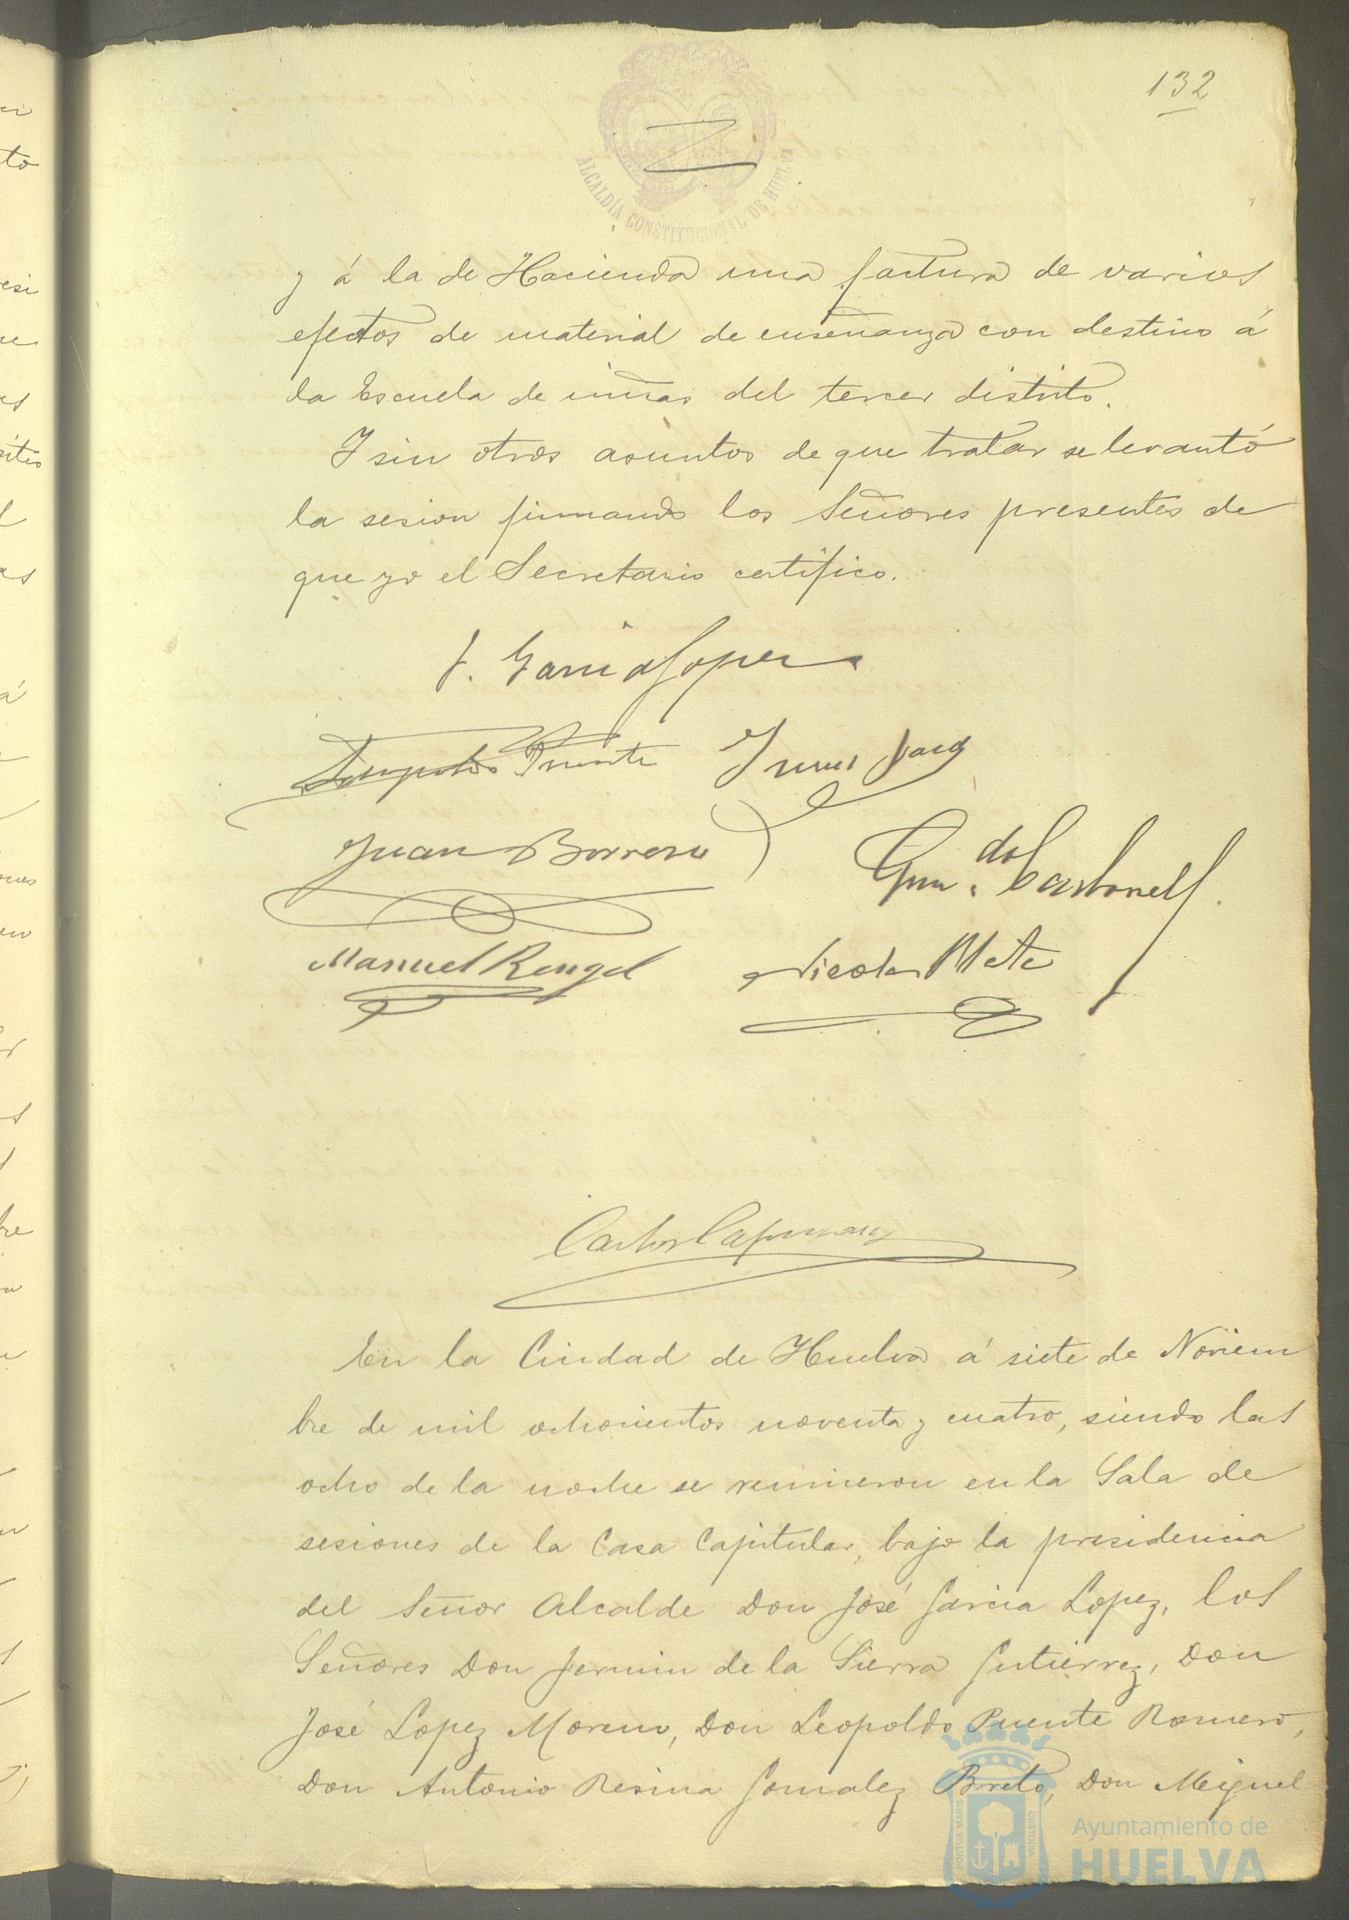 132
ALCALDÍA CONSTITUCIONAL DE HUELVA
y á la de Hacienda una factura de varios
efectos de material de enseñanza con destino á
la Escuela de niñas del tercer distrito.
Y sin otros asuntos de que tratar se levantó
la sesion firmando los Señores presentes de
que yo el Secretario certifico.
J. Garcia Lopez
Leopoldo Puente
Juan Borrero
Gum.do Carbonell
Manuel Rengel
Nicolas
Carlos Capmany
En la Ciudad de Huelva á siete de Noviem
bre de mil ochocientos noventa y cuatro, siendo las
ocho de la noche se reunieron en la Sala de
sesiones de la Casa Capitular, bajo la presidencia
del Señor Alcalde Don José Garcia Lopez, los
Señores Don Fermin de la Sierra Gutierrez, Don
José Lopez Moreno, Don Leopoldo Puente Romero,
Don Antonio Resina Gonzalez Don Miguel
PORTUS MARIS CUSTODIA
Ayuntamiento de
HUELVA